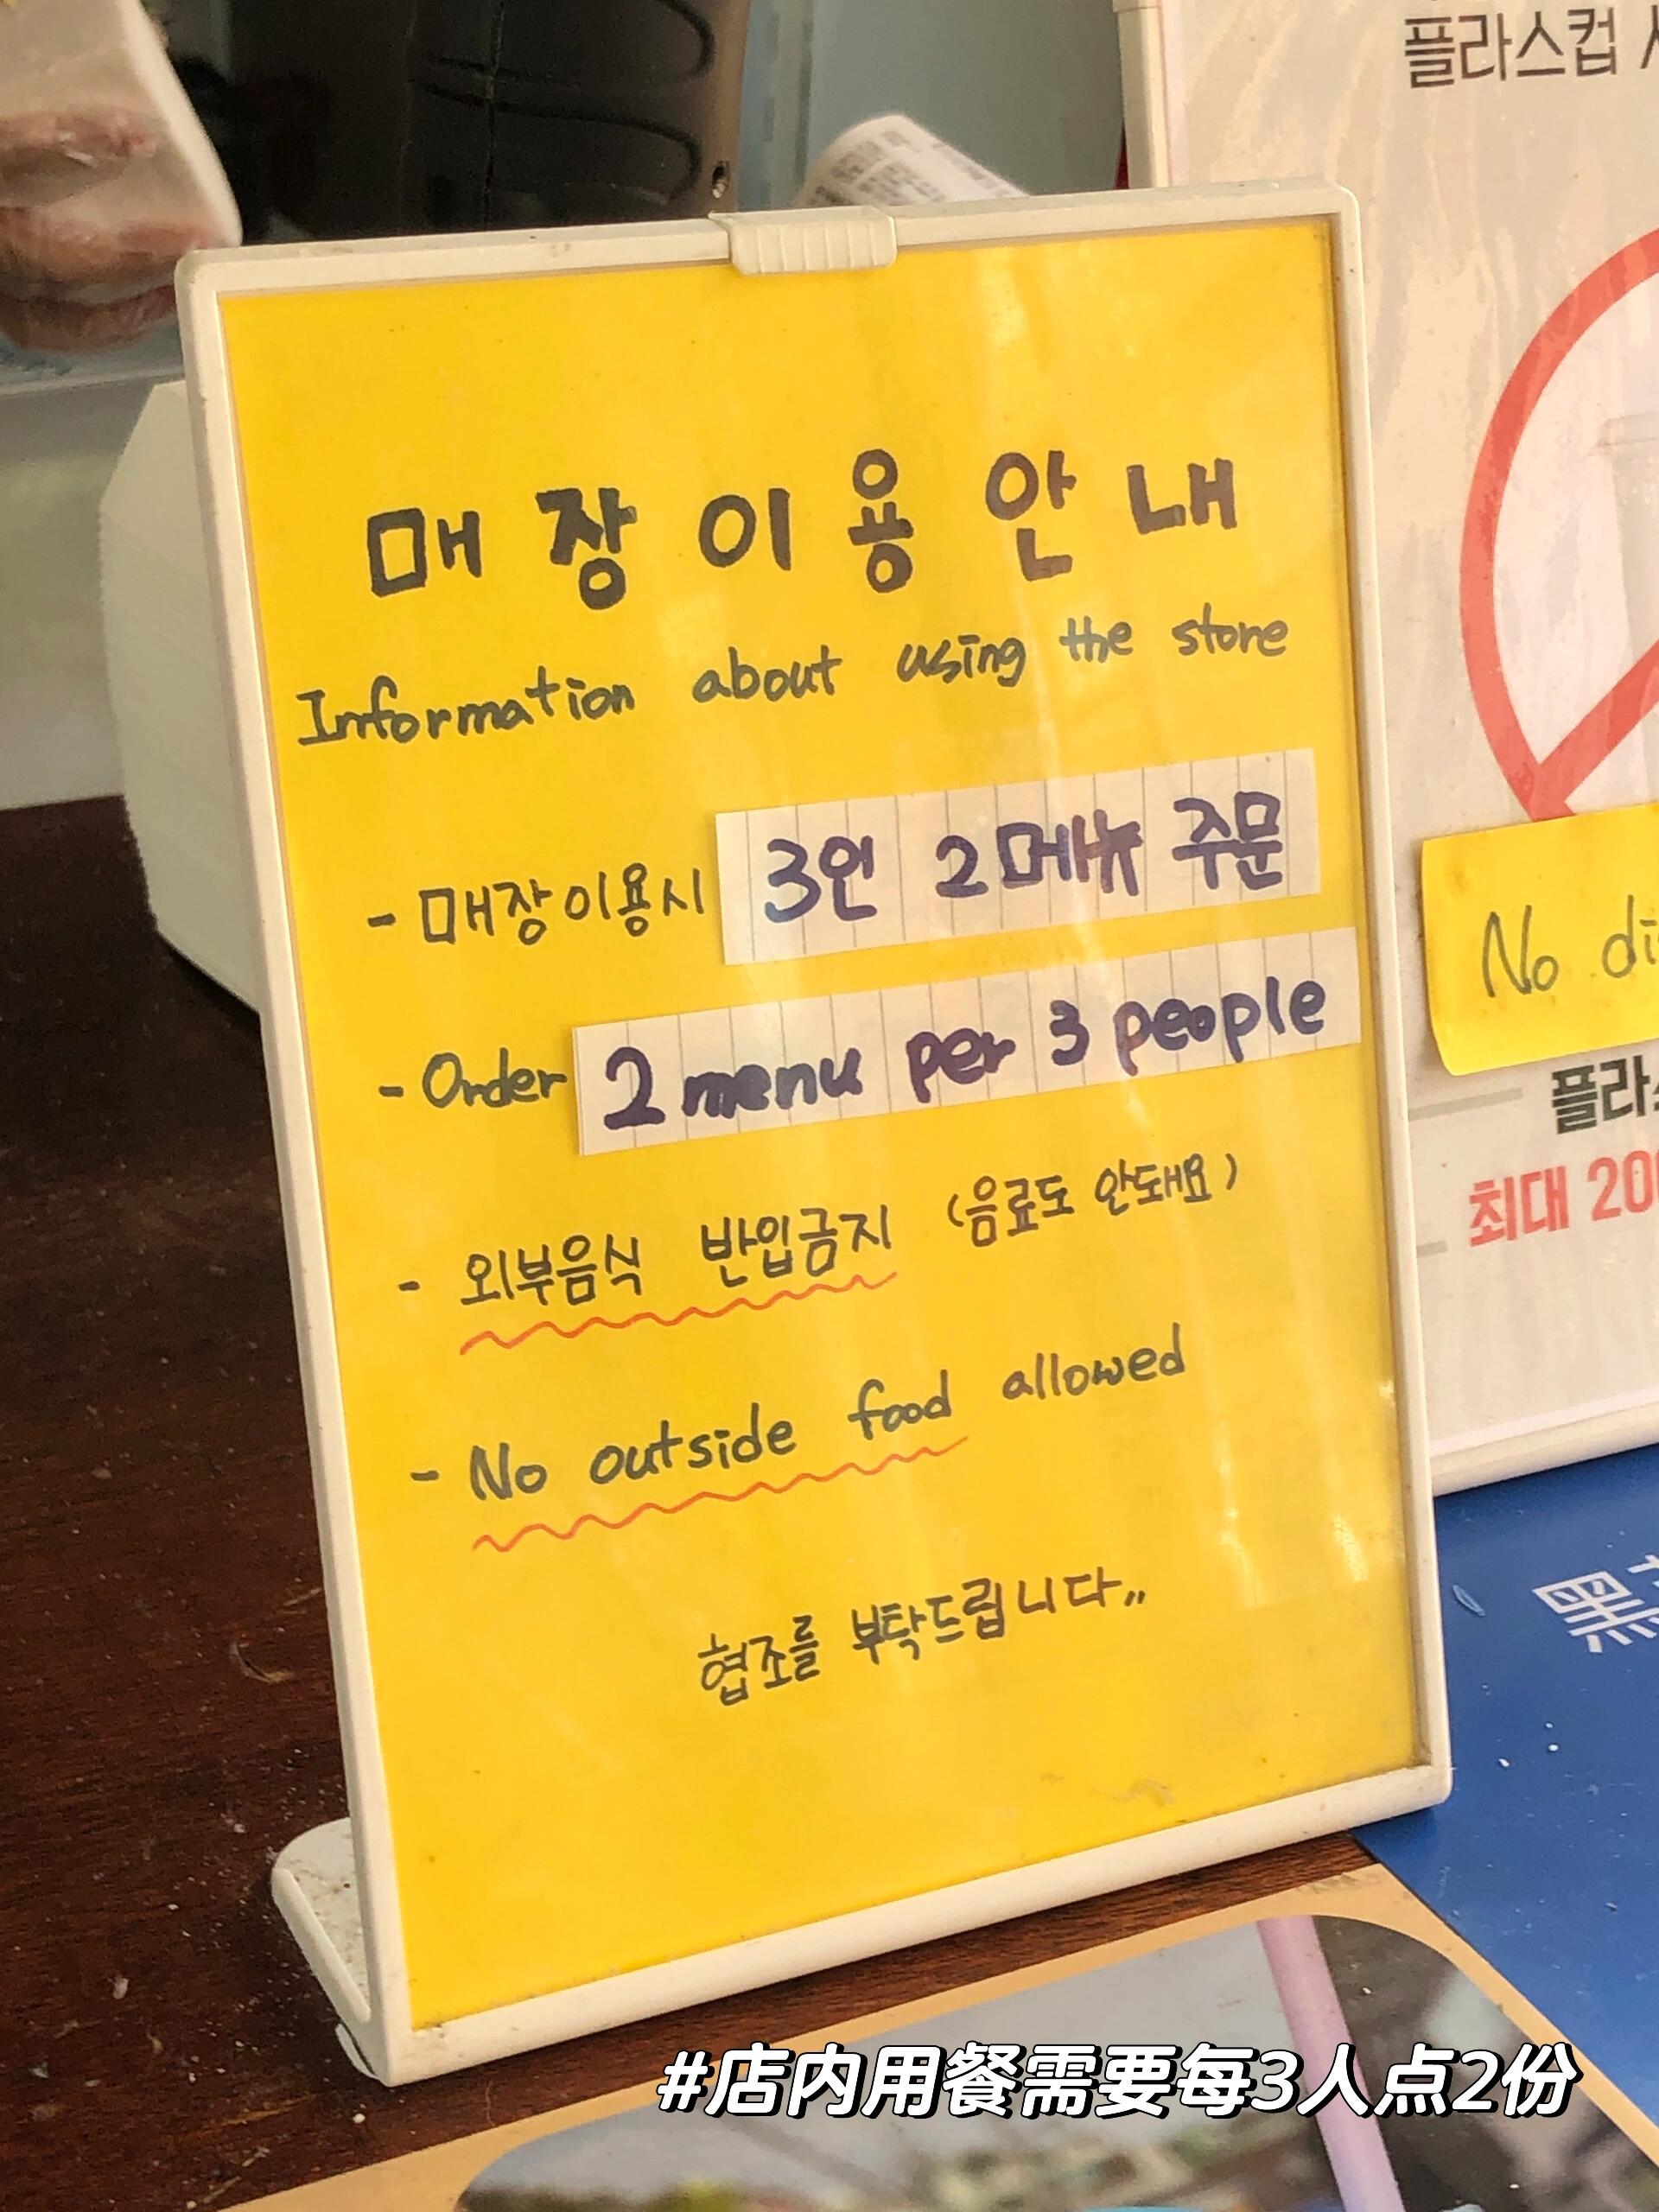 플라스컵
매장이용안내
Information about using the store
- 매장이용시 3인 2메뉴 주문
- Order 2 menu per 3 people
- 외부음식 반입금지 (음료도 안돼요)
- No outside food allowed
협조를 부탁드립니다..
No
최대 200
黑
#店内用餐需要每3人点2份